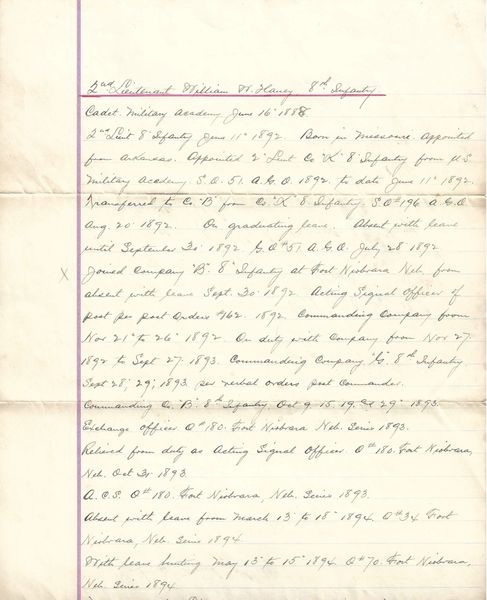 2nd Lieutenant William W. Haney, 8th Infantry
Cadet Military Academy June 16" 1888
2nd Lieut 8" Infantry June 11" 1892. Born in Missouri. Appointed
from Arkansas. Appointed 2" Lieut Co "K" 8" Infantry from U.S
Military Academy. S.O. 51. A.G.O. 1892. to date June 11" 1892.
Transferred to Co "B" from Co. "K" 8" Infantry. S.O # 196. A.G.O
Aug. 20" 1892. On graduating leave. Absent with leave
until September 30" 1892. G.O # 51 A.G.O. July 28" 1892
X Joined Company "B" 8" Infantry at Fort Niobrara Neb. from
absent with leave Sept. 30" 1892. Acting Signal Officer of
post per post Orders #162. 1892. Commanding Company from
Nov 21" to 26" 1892. On duty with Company from Nov 27"
1892 to Sept 27" 1893. Commanding Company 8th Infantry
Sept 28", 29", 1893 per verbal orders post Commander.
Commanding Co. "B" 8th Infantry, Oct 9. 15. 19. & 29" 1893.
Exchange Officer O# 180. Fort Niobrara Neb. Series 1893.
Relieved from duty as Acting Signal Officer. O# 180. Fort Niobrara,
Neb. Oct 31 1893.
A.C.S. O# 180. Fort Niobrara, Neb. Series 1893.
Absent with leave from March 13" to 18" 1894. O#34 Fort
Niobrara, Neb. Series 1894
With leave hunting May 13" to 15" 1894. O#70. Fort Niobrara,
Neb. Series 1894.